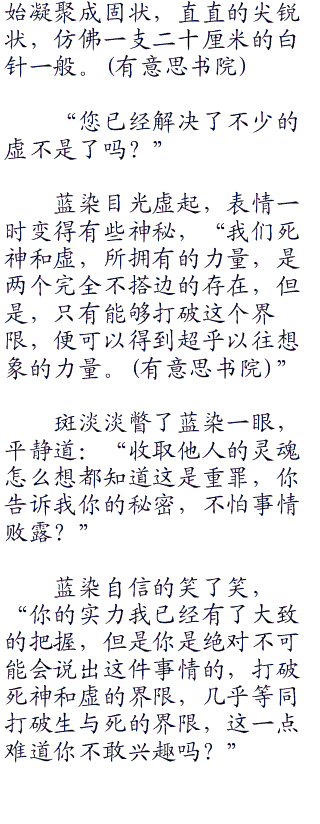 始凝聚成固状，直直的尖锐
状，仿佛一支二十厘米的白
针一般。(有意思书院)
“您已经解决了不少的
虚不是了吗？”
蓝染目光虚起，表情一
时变得有些神秘，“我们死
神和虚，所拥有的力量，是
两个完全不搭边的存在，但
是，只有能够打破这个界
限，便可以得到超乎以往想
象的力量。(有意思书院)”
斑淡淡瞥了蓝染一眼，
平静道：“收取他人的灵魂
怎么想都知道这是重罪，你
告诉我你的秘密，不怕事情
败露？”
蓝染自信的笑了笑，
“你的实力我已经有了大致
的把握，但是你是绝对不可
能会说出这件事情的，打破
死神和虚的界限，几乎等同
打破生与死的界限，这一点
难道你不敢兴趣吗？”